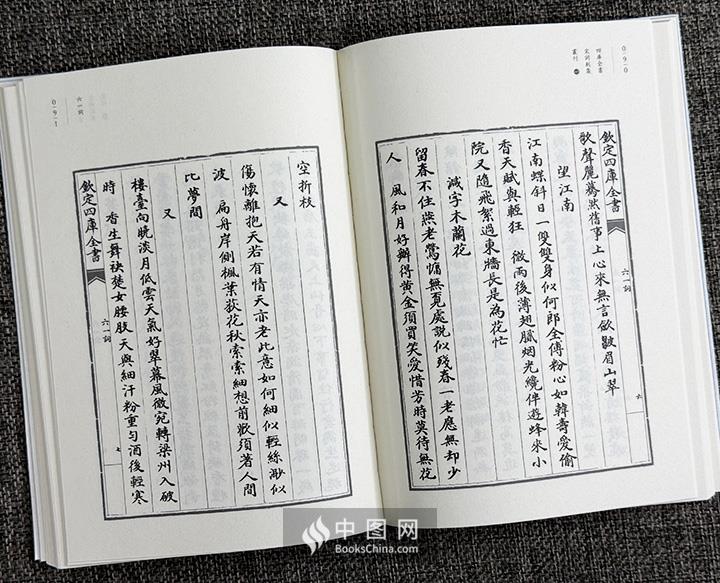 0-9-0
四庫全書
宋詞別集
叢刊 一
欽定四庫全書 六一詞 六
歌聲麗驀然舊事上心來無言歛皺眉山翠
望江南
江南蝶斜日一雙雙身似何郎全傅粉心如韓壽愛偷
香天賦與輕狂 微雨後薄翅膩烟光纔伴遊蜂來小
院又隨飛絮過東牆長是為花忙
減字木蘭花
留春不住燕老鶯慵無覓處說似殘春一老應無却少
人 風和月好辦得黄金須買笑愛惜芳時莫待無花
0-9-1
六一詞
空折枝
又
傷懷離抱天若有情天亦老此意如何細似輕絲渺似
波 扁舟岸側楓葉荻花秋索索細想前歡須著人間
比夢間
又
樓臺向曉淡月低雲天氣好翠幕風微宛轉梁州入破
時 香生舞袂楚女腰肢天與細汗粉重勻酒後輕寒
欽定四庫全書 六一詞 七
中图网
BooksChina.com